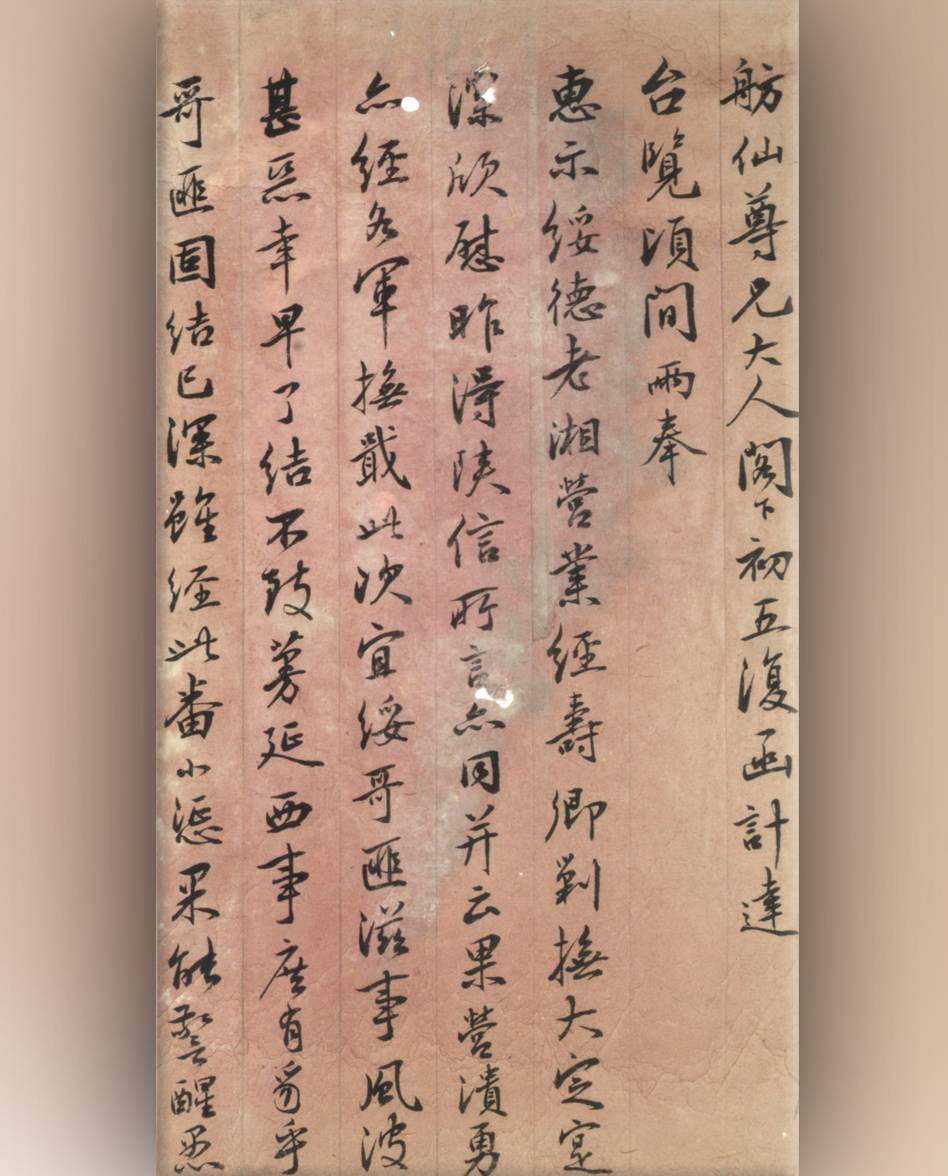 舫仙尊兄大人閣下初五復函計達
台覽頃間兩奉
惠示綏德老湘營業經壽卿剿撫大定寔
深欣慰昨得陝信所言亦同并云果營潰勇
亦經各軍撫戢此次宜綏哥匪滋事風波
甚惡幸早了結不致蔓延西事庶有豸乎
哥匪固結已深雖經此番小懲果能警醒愚